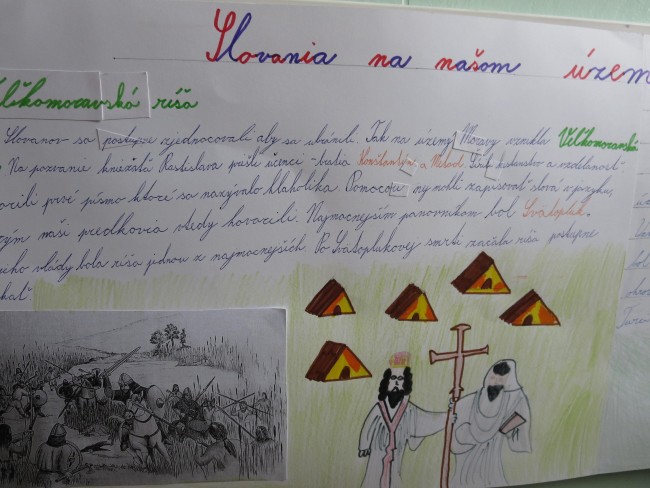 Slovania na našom územ
Veľkomoravská ríša
Slovanov sa postupne zjednocovali aby sa ubránili. Tak na území Moravy vznikla Veľkomoravská
Na pozvanie kniežaťa Rastislava prišli učenci - bratia Konštantín a Metod. Šírili kresťanstvo a vzdelanosť.
orili prvé písmo ktoré sa nazývalo hlaholika. Pomocou nej mohli zapisovať slová z jazyka,
rým naši predkovia vtedy hovorili. Najmocnejším panovníkom bol Svätopluk.
ho vlády bola ríša jednou z najmocnejších. Po Svätoplukovej smrti začala ríša postupne
kať.